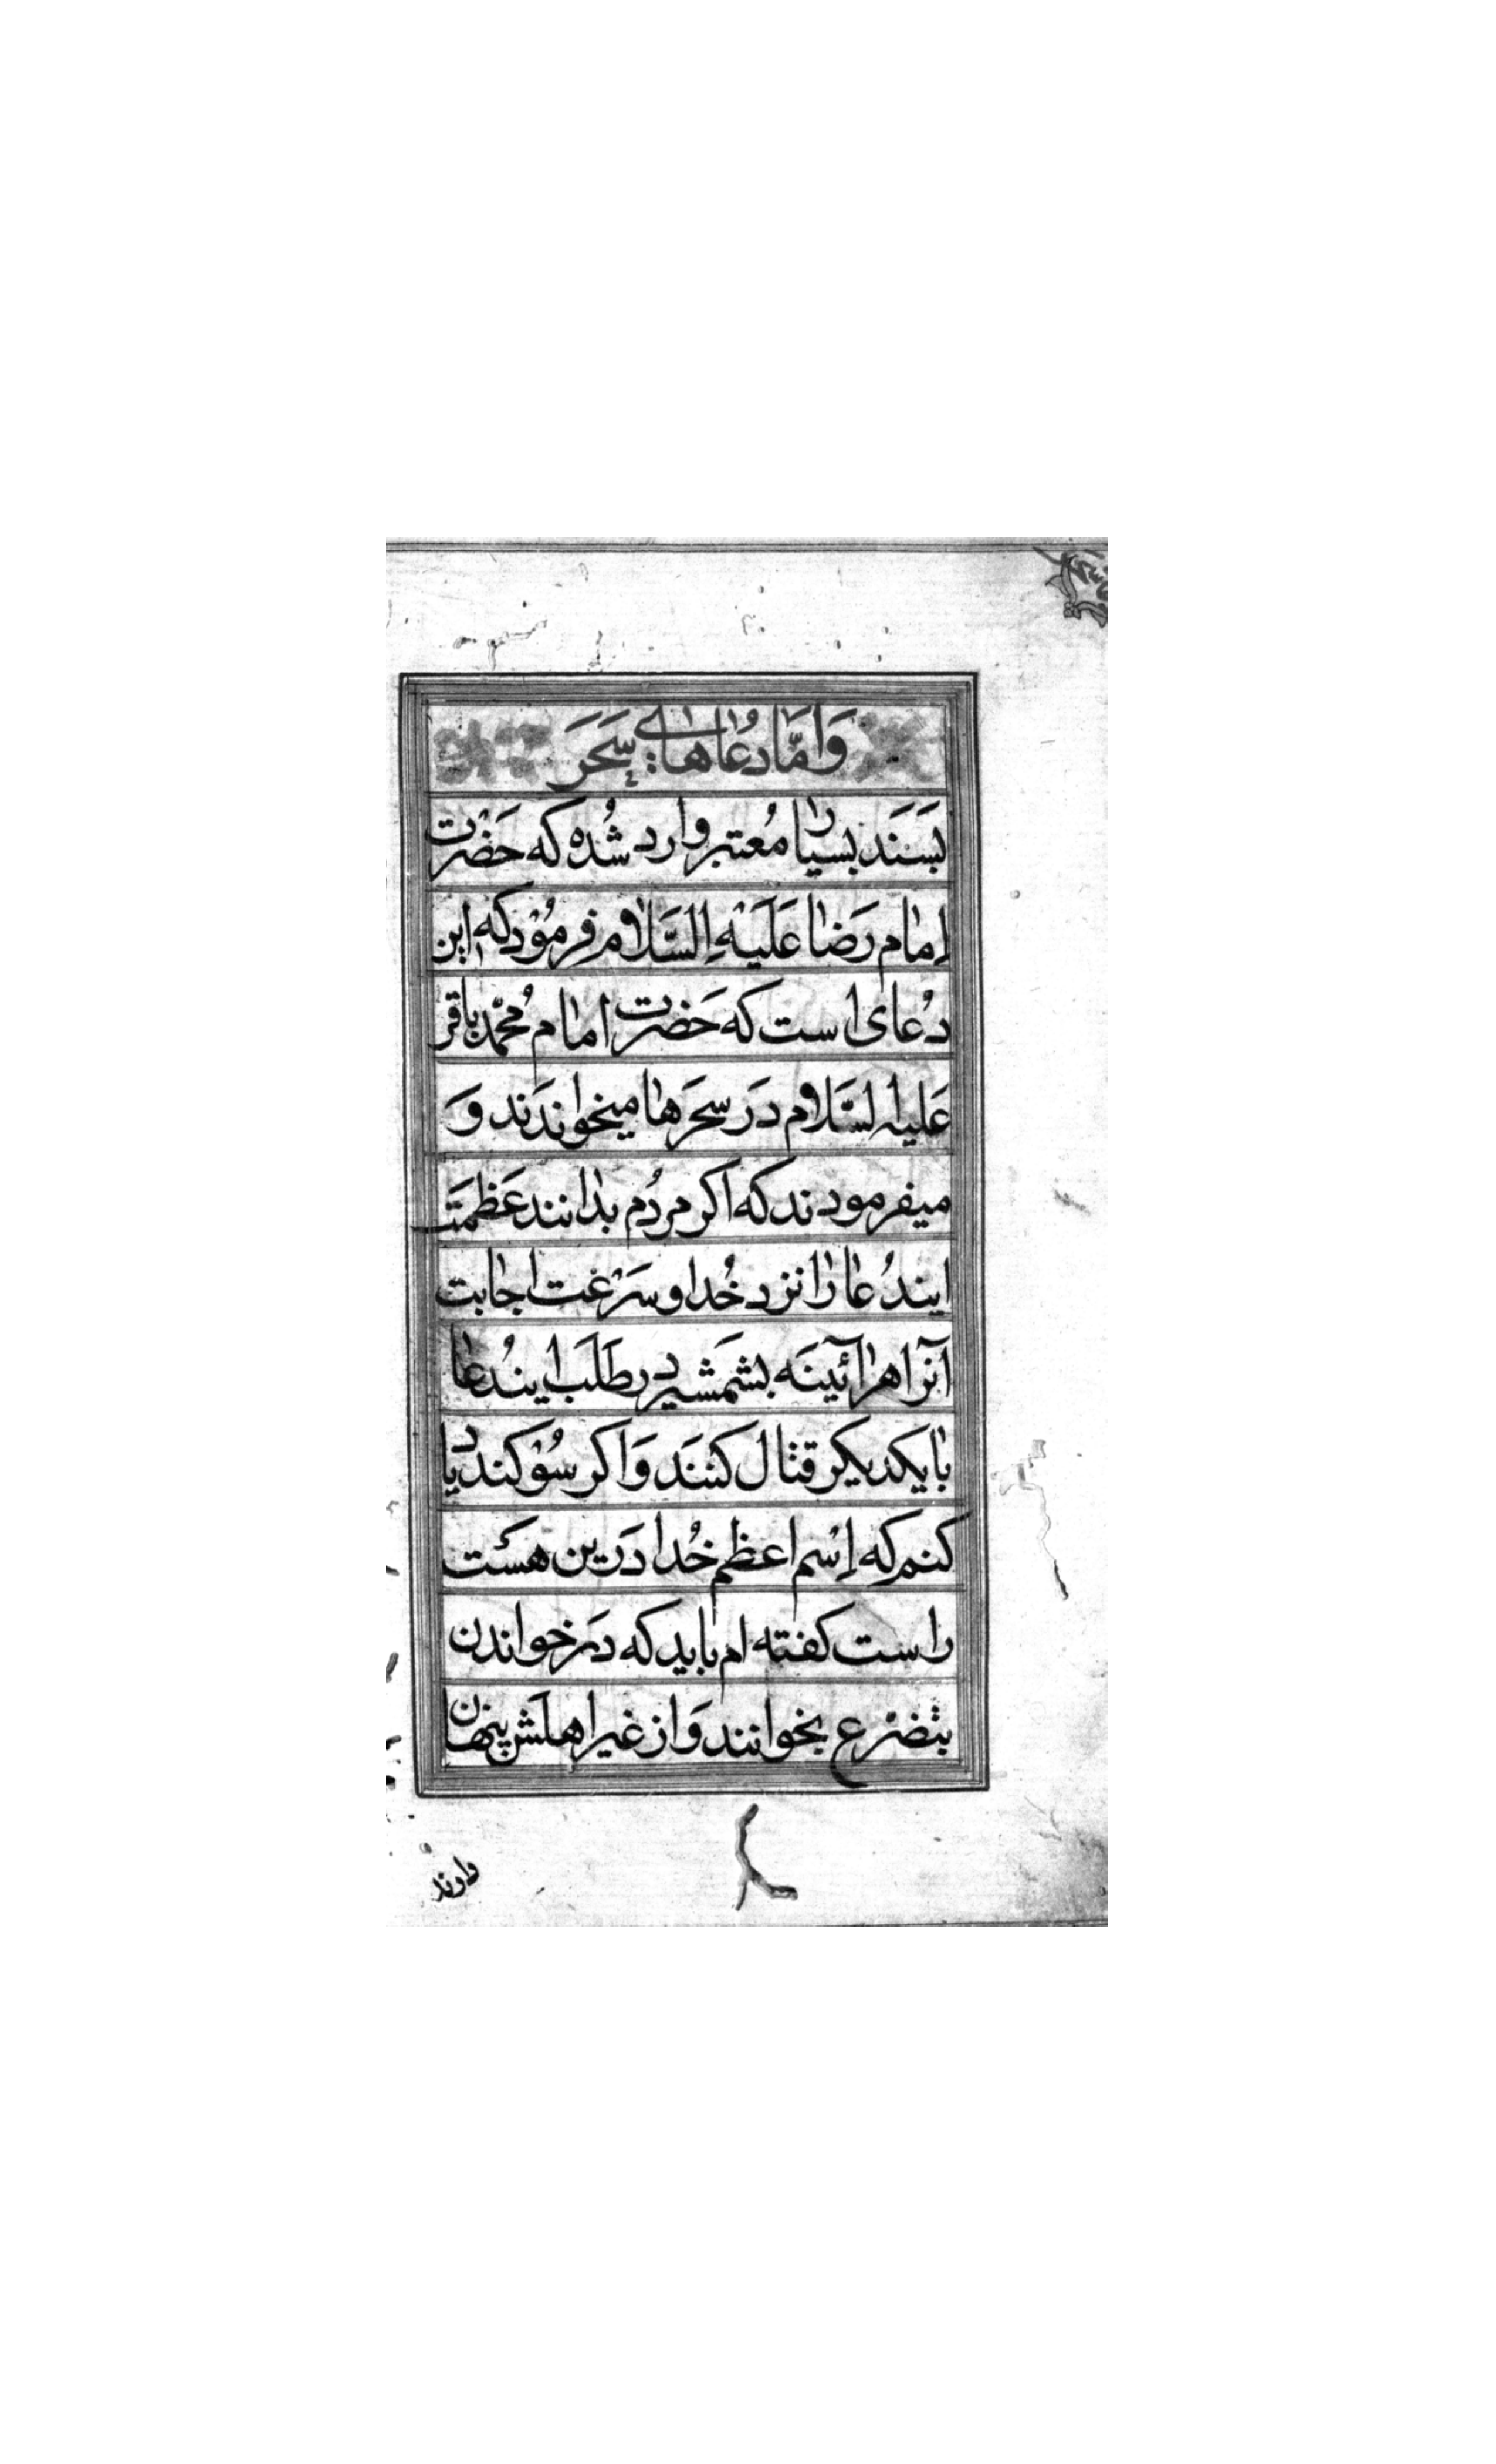 وَاَمَّا دُعَاهَای سَحَرَ
بسَنَد بسیار مُعتبر وارد شُده که حَضْرت
اِمام رَضا عَلَیْهِ السَّلام فرمُوْد که این
دُعای است که حَضرت امام مُحمّد باقر
عَلیه السَّلام دَر سحَرها میخواندَند وَ
میفرمودند که اکر مردُم بدانند عَظمَت
ایندُعا را نزد خُدا و سَرْعَت اجابت
آنرا هرآئینَه بشمشیر در طلَب ایندُعا
بایکدیکر قتال کنند وَ اکر سُوْکند یاد
کنم که اِسْم اعظم خُدا دَرین هَست
راست کفته ام باید که دَر خواندن
بتضرّع بخوانند وَ از غیر اهلش پنهان
دارند